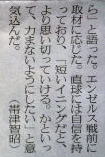 ら」と語った。エンゼルス戦前に
取材に応じた。直球には自信を持
っており、「短いイニングだと、
より思い切っていける。かといっ
て、力まないようにしたい」と意
気込んだ。　　（帯津智昭）